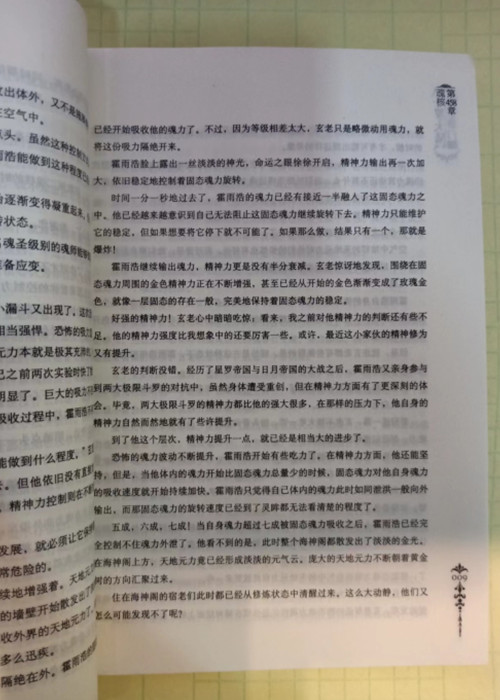 出体外，又不是
空气中。
头。虽然这种控制
雨浩能做到这种程度
逐渐变得凝重起来，
状态。
魂圣级别的魂师能
备应变。
小漏斗又出现了。这
相当强悍。恐怖的吸
元力本就是极其充
已之前两次实验时快了
明显了。巨大的吸
吸收过程中，霍雨浩
能做到什么程度，”玄
去。但他依旧没有
，精神力控制则在不
发展，就必须让它
常危险的。
续地增强着，天地元力
的墙壁开始散发出了
收外界的天地元力，
多么迅疾。
隔绝在外。霍雨浩的
第458章
魂核
已经开始吸收他的魂力了。不过，因为等级相差太大，玄老只是略微动用魂力，就
将这份吸力隔绝开来。
霍雨浩脸上露出一丝淡淡的神光，命运之眼徐徐开启，精神力输出再一次加
大，依旧稳定地控制着固态魂力旋转。
时间一分一秒地过去了，霍雨浩的魂力已经有接近一半融入了这固态魂力之
中。他已经越来越意识到自己无法阻止这固态魂力继续旋转下去。精神力只能维护
它的稳定，但如果想要将它停下就不可能了。如果那么做，结果只有一个，那就是
爆炸！
霍雨浩继续输出魂力，精神力更是没有半分衰减。玄老惊讶地发现，围绕在固
态魂力周围的金色精神力正在不断增强，甚至已经从开始的金色渐渐变成了玫瑰金
色，就像一层固态的存在一般，完美地保持着固态魂力的稳定。
好强的精神力！玄老心中暗暗吃惊，看来，我之前对他精神力的判断还有些不
足。他的精神力强度比我想象中的还要厉害一些。或许，最近这小家伙的精神修为
又有提升。
玄老的判断没错。经历了星罗帝国与日月帝国的大战之后，霍雨浩又亲身参与
到两大极限斗罗的对抗中，虽然身体遭受重创，但在精神力方面有了更深刻的体
会。毕竟，两大极限斗罗的精神力都比他的强大很多，在那样的压力下，他自身的
精神力自然而然地就有了些许提升。
到了他这个层次，精神力提升一点，就已经是相当大的进步了。
恐怖的魂力波动不断提升，霍雨浩开始有些吃力了。在精神力方面，他还能坚
持，但是，当他体内的魂力开始比固态魂力总量少的时候，固态魂力对他自身魂力
的吸收速度就开始持续加快。霍雨浩只觉得自己体内的魂力此时如同泄洪一般向外
输出，而那固态魂力的旋转速度已经到了灵眸都无法看清楚的程度了。
五成，六成，七成！当自身魂力超过七成被固态魂力吸收之后，霍雨浩已经完
全控制不住魂力外泄了。他看不到的是，此时整个海神阁都散发出了淡淡的金光。
在海神阁上方，天地元力竟已经形成淡淡的元气云。庞大的天地元力不断朝着黄金
树的方向汇聚过来。
住在海神阁的宿老们此时都已经从修炼状态中清醒过来。这么大动静，他们又
怎么可能发现不了呢？
009